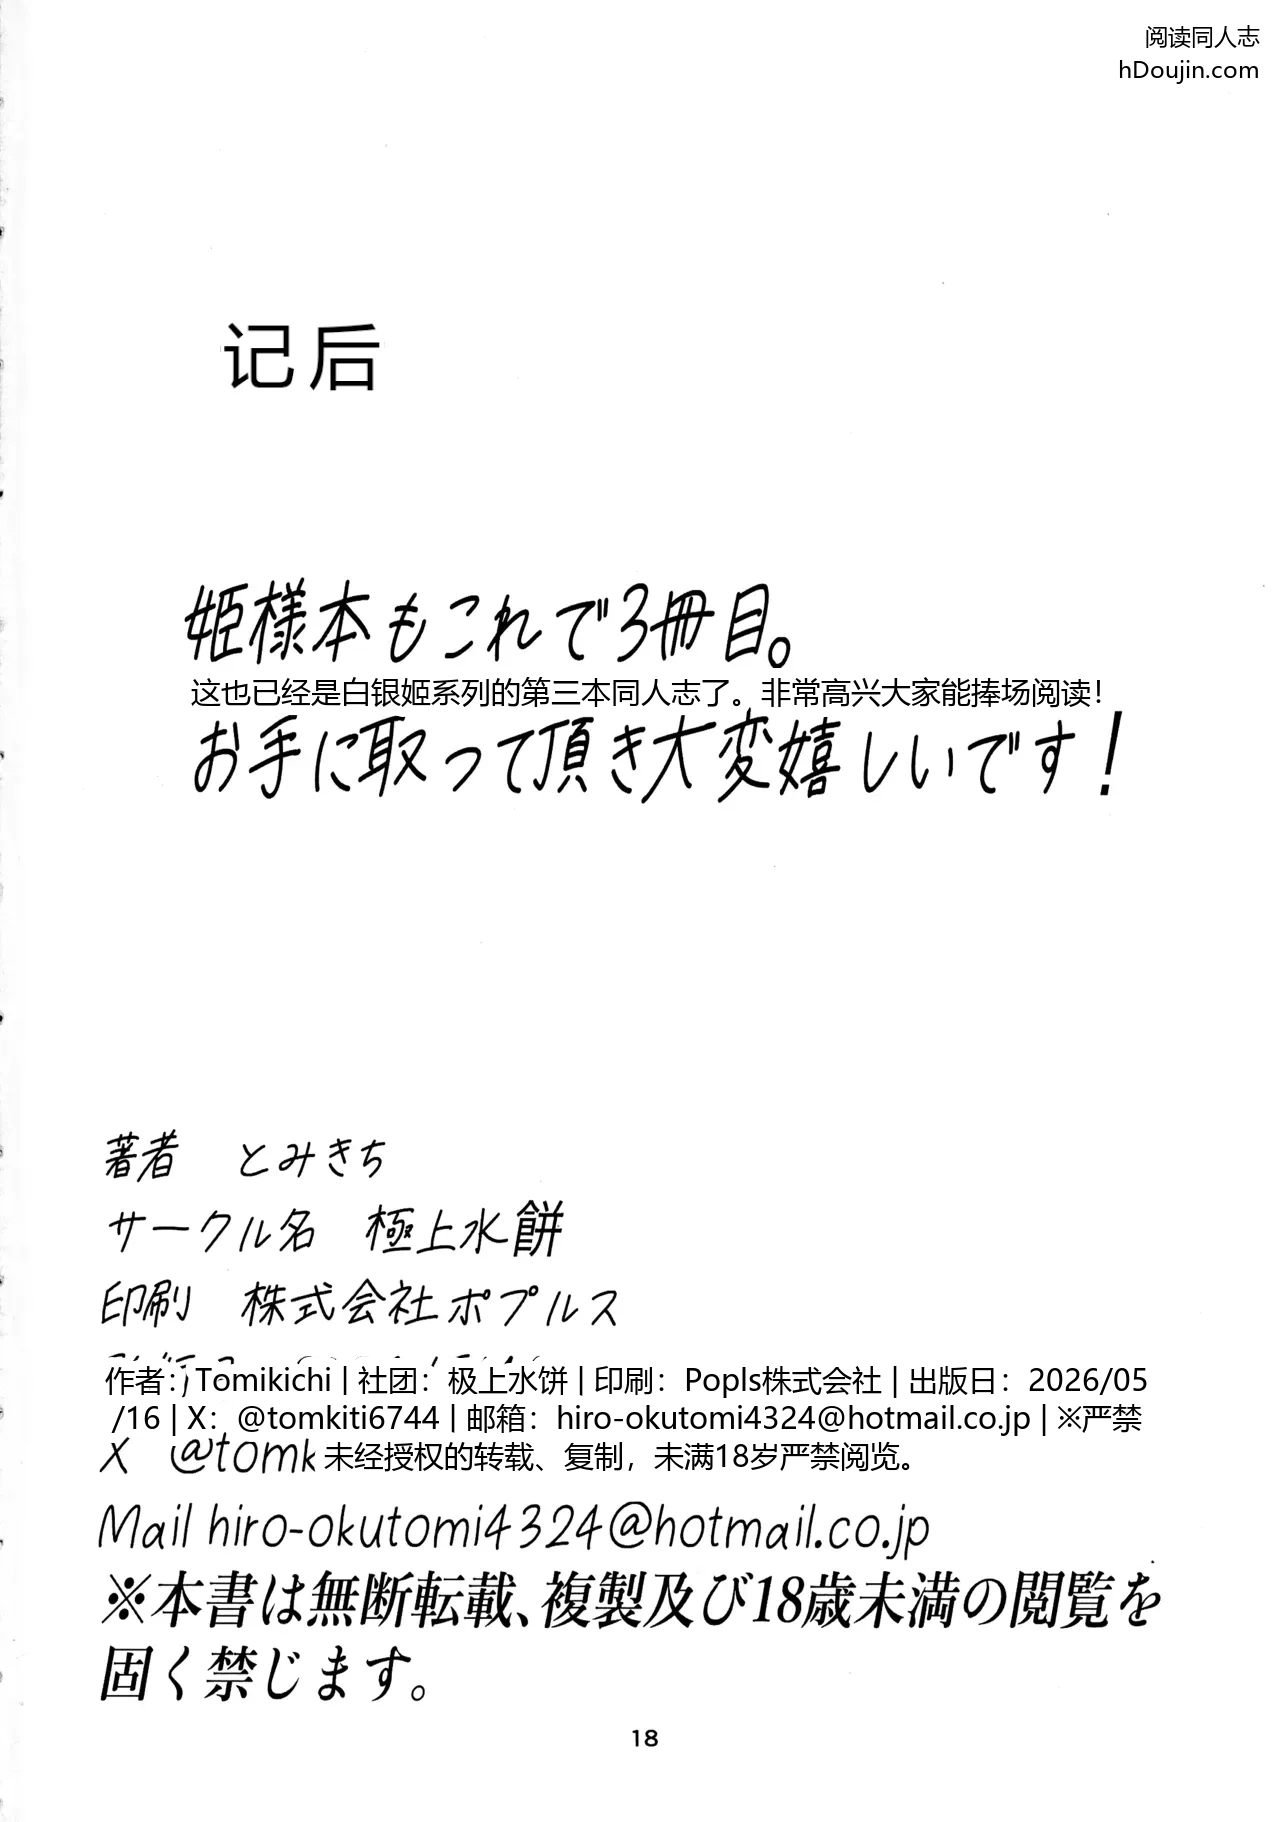 阅读同人志
hDoujin.com
记后
姫様本もこれで3冊目。
这也已经是白银姬系列的第三本同人志了。非常高兴大家能捧场阅读！
お手に取って頂き大変嬉しいです！
著者 とみきち
サークル名 極上水餅
印刷 株式会社ポプルス
作者：Tomikichi | 社团：极上水饼 | 印刷：Popls株式会社 | 出版日：2026/05
/16 | X：@tomkiti6744 | 邮箱：hiro-okutomi4324@hotmail.co.jp | ※严禁
X @tomk 未经授权的转载、复制，未满18岁严禁阅览。
Mail hiro-okutomi4324@hotmail.co.jp
※本書は無断転載、複製及び18歳未満の閲覧を
固く禁じます。
18